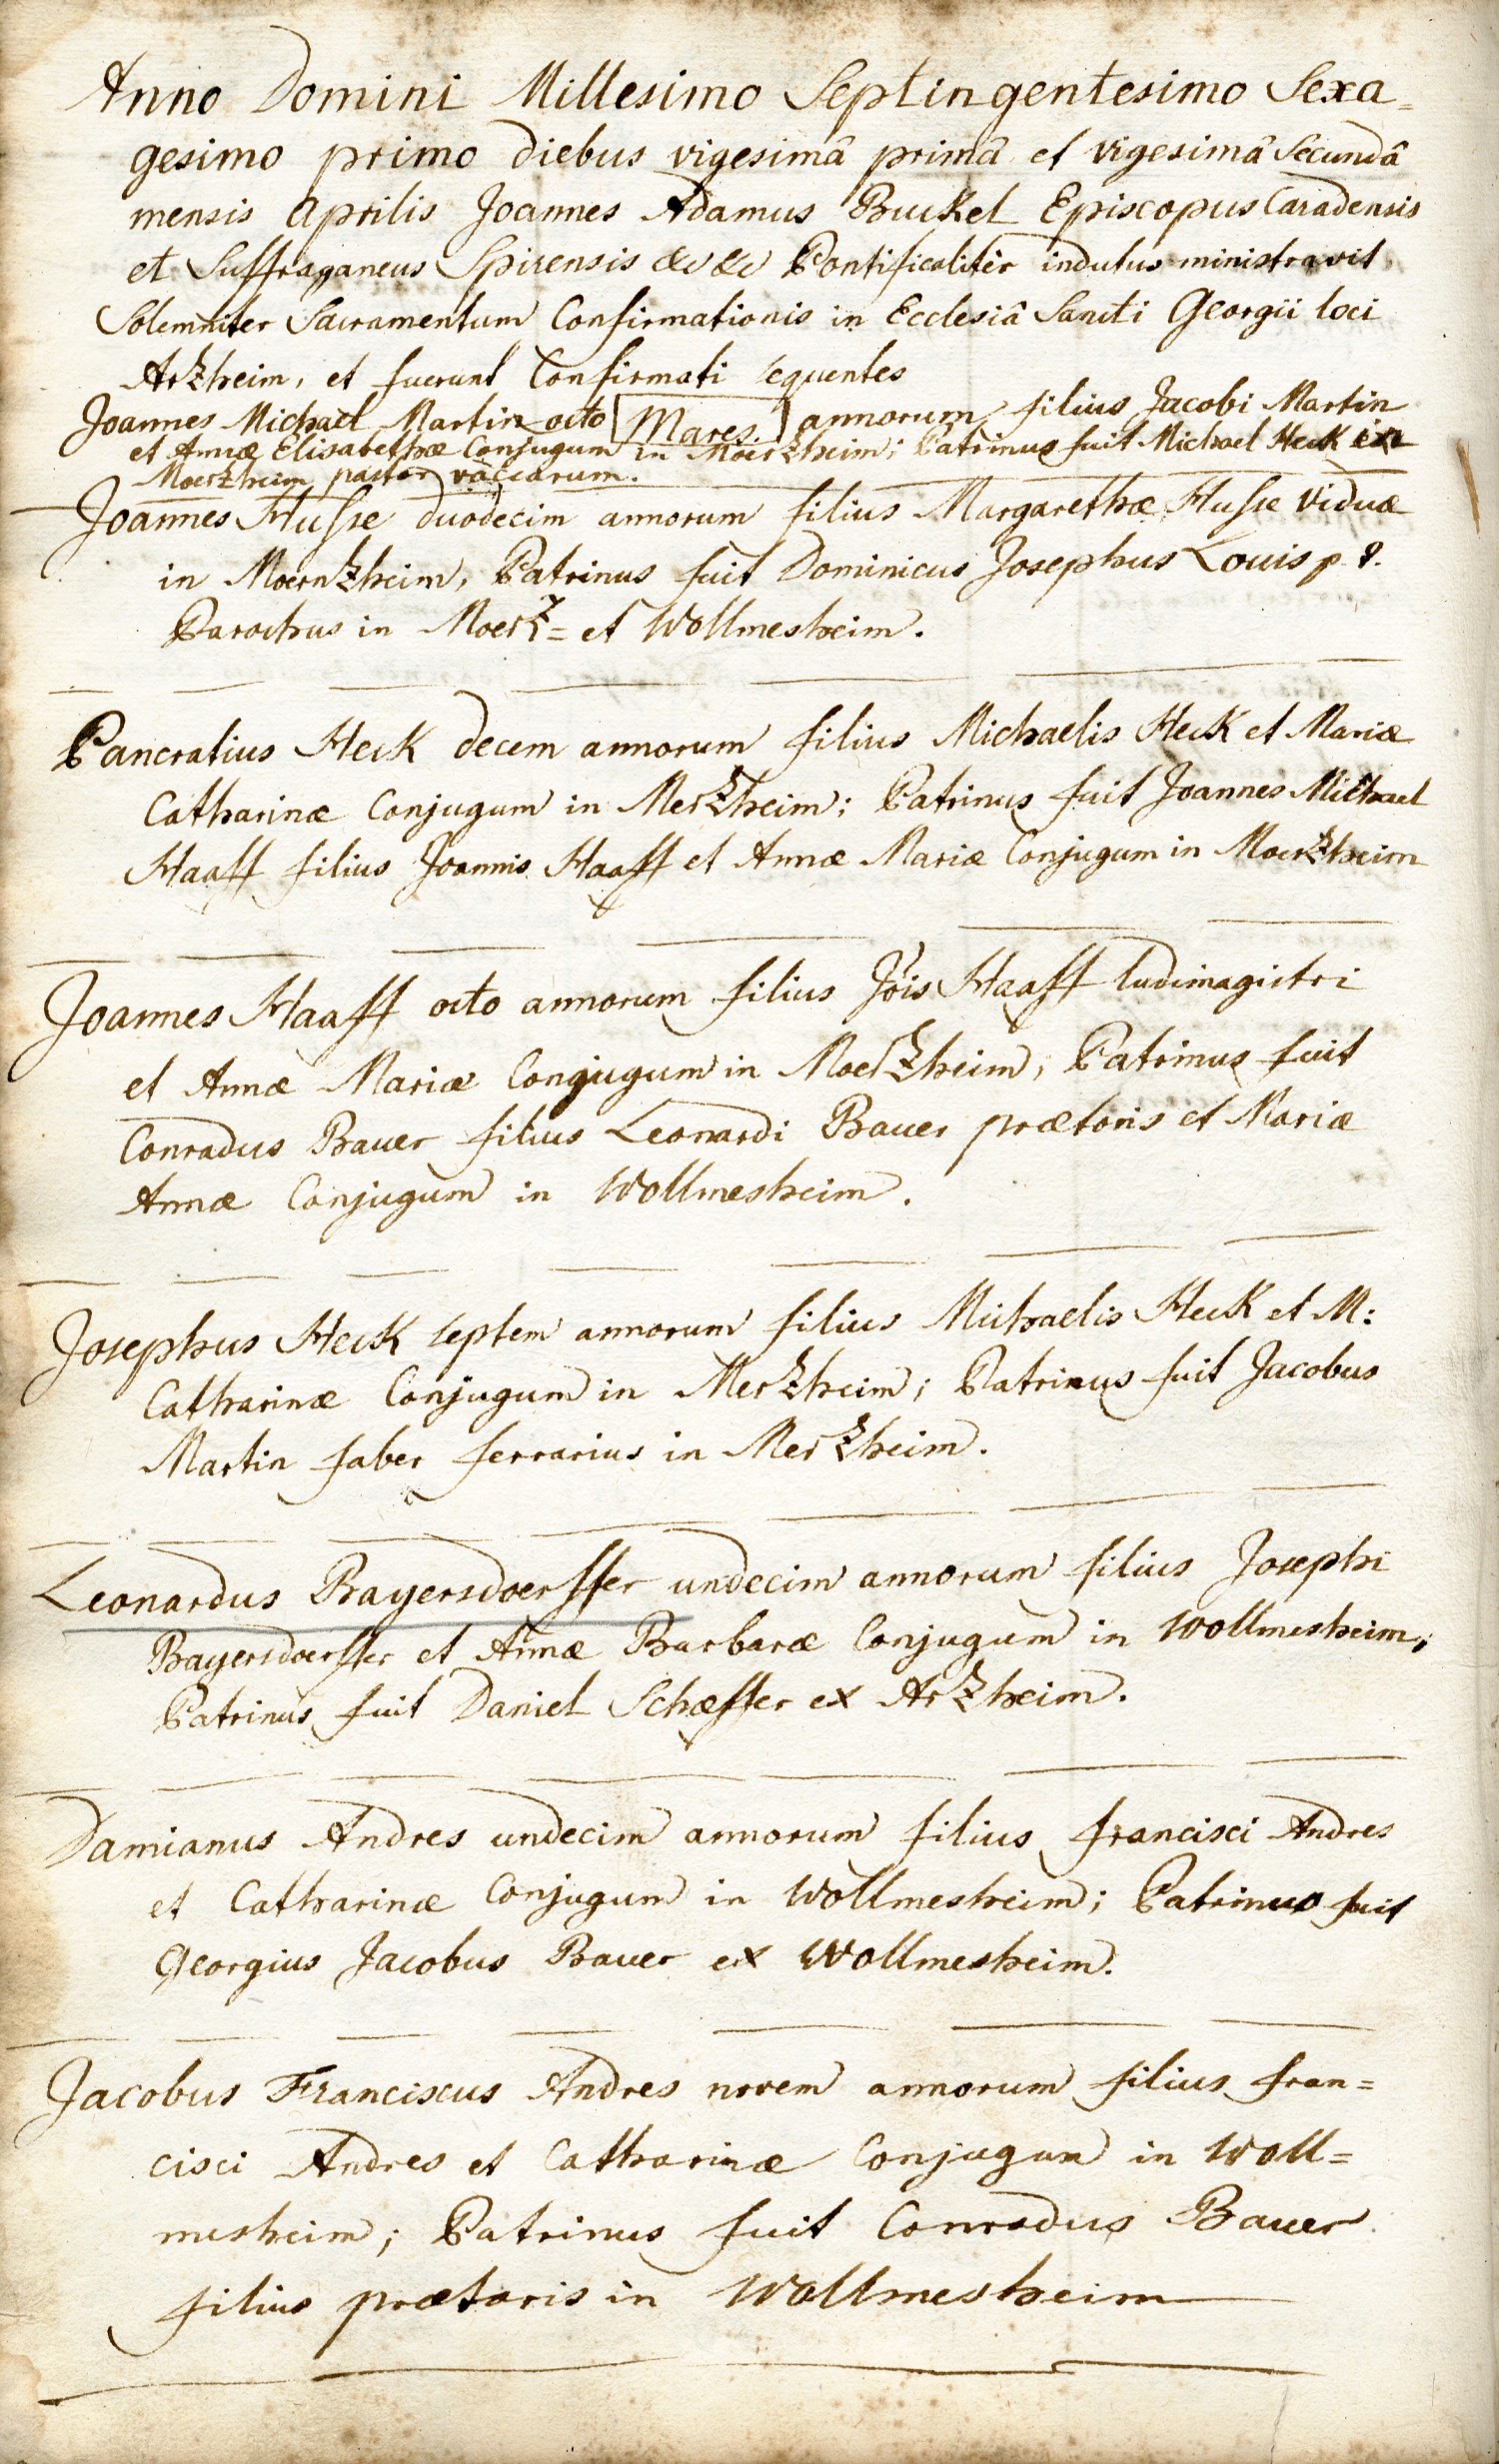 Anno Domini Millesimo Septingentesimo Sexa=
gesimo primo diebus vigesimâ primâ et vigesimâ Secundâ
mensis Aprilis Joannes Adamus Buckel Episcopus Caradensis
et Suffraganeus Spirensis &c &c Pontificaliter indutus ministravit
Solemniter Sacramentum Confirmationis in Ecclesiâ Sancti Georgii loci
Arzheim, et fuerunt Confirmati sequentes
Mares.
Joannes Michael Martin octo annorum filius Jacobi Martin
et Annæ Elisabethæ Conjugum in Moerzheim; Patrinus fuit Michael Heck in
Moerzheim pastor vaccarum.
Joannes Husse duodecim annorum filius Margarethæ Husse Viduæ
in Moernzheim, Patrinus fuit Dominicus Josephus Louis p. t.
Parochus in Moerz= et Wollmesheim.
Pancratius Heck decem annorum filius Michaelis Heck et Mariæ
Catharinæ Conjugum in Merzheim; Patrinus fuit Joannes Michael
Haaff filius Joannis Haaff et Annæ Mariæ Conjugum in Moerzheim
Joannes Haaff octo annorum filius Jois Haaff ludimagistri
et Annæ Mariæ Conjugum in Moerzheim, Patrinus fuit
Conradus Bauer filius Leonardi Bauer prætoris et Mariæ
Annæ Conjugum in Wollmesheim.
Josephus Heck septem annorum filius Michaelis Heck et M:
Catharinæ Conjugum in Merzheim; Patrinus fuit Jacobus
Martin faber ferrarius in Merzheim.
Leonardus Bayersdoerffer undecim annorum filius Josephi
Bayersdoerffer et Annæ Barbaræ Conjugum in Wollmesheim;
Patrinus fuit Daniel Schæffer ex Arzheim.
Damianus Andres undecim annorum filius francisci Andres
et Catharinæ Conjugum in Wollmesheim; Patrinus fuit
Georgius Jacobus Bauer ex Wollmesheim.
Jacobus Franciscus Andres novem annorum filius fran=
cisci Andres et Catharinæ Conjugum in Woll=
mesheim; Patrinus fuit Conradus Bauer
filius prætoris in Wollmesheim